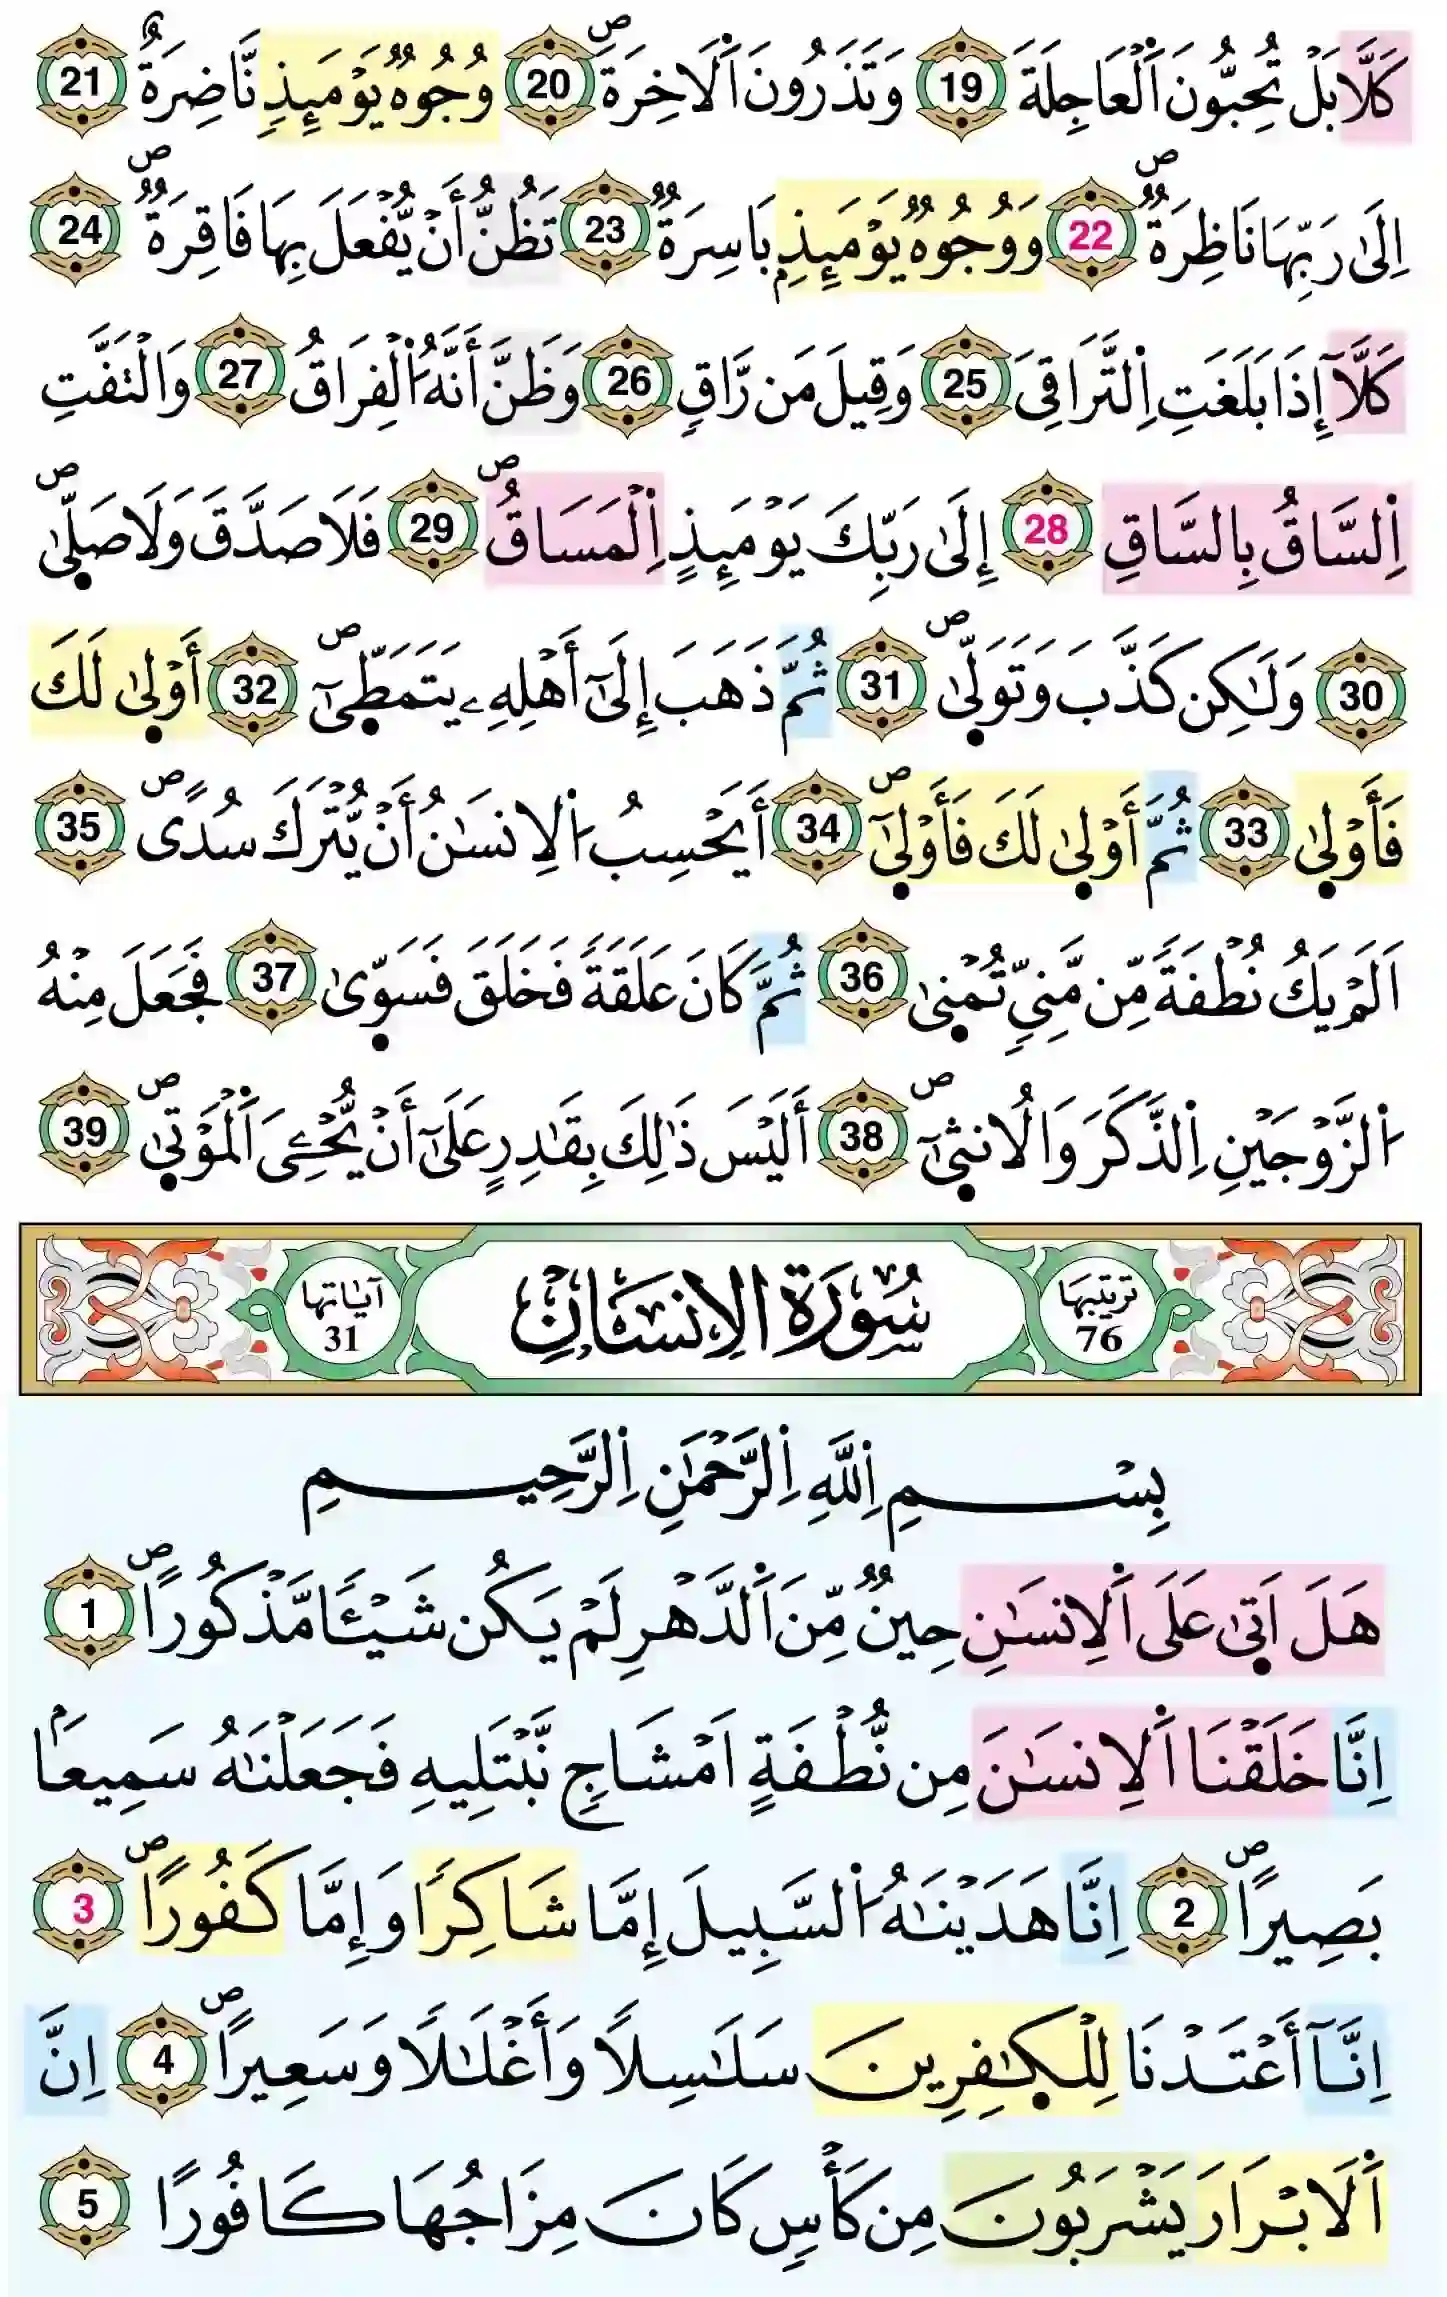 كَلَّا بَلْ تُحِبُّونَ اَ۬لْعَاجِلَةَ 19 وَتَذَرُونَ اَ۬لَاخِرَةَۖ 20 وُجُوهٞ يَوْمَئِذٖ نَّاضِرَةٌ 21
اِلَىٰ رَبِّهَا نَاظِرَةٞۖ 22 وَوُجُوهٞ يَوْمَئِذِۢ بَاسِرَةٞ 23 تَظُنُّ أَنْ يُّفْعَلَ بِهَا فَاقِرَةٞۖ 24
كَلَّآ إِذَا بَلَغَتِ اِ۬لتَّرَاقِىَ 25 وَقِيلَ مَن رَّاقٖ 26 وَظَنَّ أَنَّهُ اُ۬لْفِرَاقُ 27 وَالْتَفَّتِ
اِ۬لسَّاقُ بِالسَّاقِ 28 إِلَىٰ رَبِّكَ يَوْمَئِذٍ اِ۬لْمَسَاقُۖ 29 فَلَا صَدَّقَ وَلَا صَلّ۪ىٰۖ
30 وَلَٰكِن كَذَّبَ وَتَوَلّ۪ىٰۖ 31 ثُمَّ ذَهَبَ إِلَىٰٓ أَهْلِهِۦ يَتَمَطّ۪ىٰٓۖ 32 أَوْل۪ىٰ لَكَ
فَأَوْل۪ىٰ 33 ثُمَّ أَوْل۪ىٰ لَكَ فَأَوْل۪ىٰٓۖ 34 أَيَحْسِبُ اُ۬لِانسَٰنُ أَنْ يُّتْرَكَ سُدًىۖ 35
اَلَمْ يَكُ نُطْفَةٗ مِّن مَّنِىّٖ تُمْن۪ىٰ 36 ثُمَّ كَانَ عَلَقَةٗ فَخَلَقَ فَسَوّ۪ىٰ 37 فَجَعَلَ مِنْهُ
اُ۬لزَّوْجَيْنِ اِ۬لذَّكَرَ وَالُانث۪ىٰٓۖ 38 أَلَيْسَ ذَٰلِكَ بِقَٰدِرٍ عَلَىٰٓ أَنْ يُّحْـِۧىَ اَ۬لْمَوْت۪ىٰۖ 39
ترتيبها 76 سُورَةُ الِانسَانِ آياتها 31
بِسْمِ اِ۬للَّهِ اِ۬لرَّحْمَٰنِ اِ۬لرَّحِيمِ
هَلَ اَت۪ىٰ عَلَى اَ۬لِانسَٰنِ حِينٞ مِّنَ اَ۬لدَّهْرِ لَمْ يَكُن شَيْـٔٗا مَّذْكُورًاۖ 1
اِنَّا خَلَقْنَا اَ۬لِانسَٰنَ مِن نُّطْفَةٍ اَمْشَاجٖ نَّبْتَلِيهِ فَجَعَلْنَٰهُ سَمِيعَۢا
بَصِيرًاۖ 2 اِنَّا هَدَيْنَٰهُ اُ۬لسَّبِيلَ إِمَّا شَاكِرٗا وَإِمَّا كَفُورًاۖ 3
اِنَّآ أَعْتَدْنَا لِلْكٰ۪فِرِينَ سَلَٰسِلًا وَأَغْلَٰلًا وَسَعِيرًاۖ 4 اِنَّ
اَ۬لَابْرَارَ يَشْرَبُونَ مِن كَأْسٖ كَانَ مِزَاجُهَا كَافُورًا 5